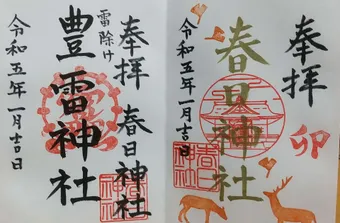 奉拝
春日神社
雷除け
豊雷神社
令和五年一月吉日
奉拝
卯
春日神社
令和五年一月吉日